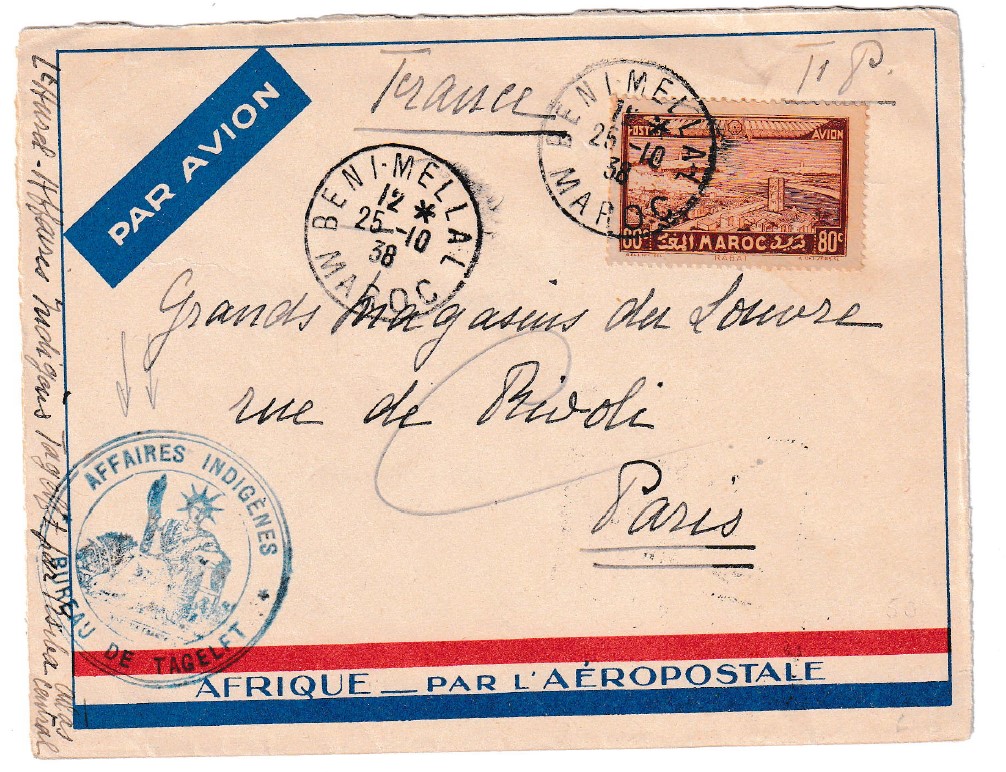 PAR AVION
France
TP.
BENI-MELLAL
12 *
25-10
38
MAROC
BENI-MELLAL
*
25-10
38
MAROC
POSTE AVION
80c MAROC 80c
RABAT
Grands Magasins du Louvre
rue de Rivoli
Paris
AFFAIRES INDIGÈNES
BUREAU DE TAGELFT *
Affaires Indigènes Tagelft par
central
AFRIQUE — PAR L'AÉROPOSTALE